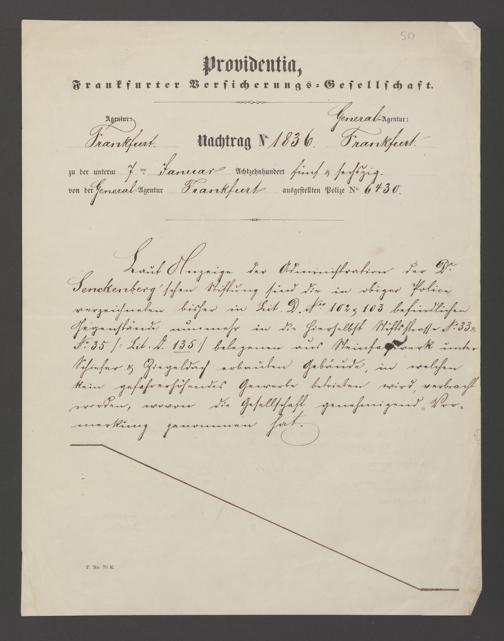 50
Providentia,
Frankfurter Versicherungs-Gesellschaft.
Agentur: General-Agentur:
Frankfurt. Nachtrag No 1836. Frankfurt.
zu der unterm 7ten Januar Achtzehnhundert fünf & sechszig.
von der General-Agentur Frankfurt ausgestellten Polize No 6430.
Laut Anzeige der Administration der Dr.
Senckenberg'schen Stiftung sind die in obiger Police
verzeichneten bisher in Lit. D. No 102 & 103 befindlichen
Gegenstände nunmehr in die hierselbst Stiftstrasse No 33 &
No 35 /: Lit. A. 135 / belegenen aus Stein werk unter
Schiefer & Ziegeldach erbauten Gebäude, in welchen
kein gefahrerhöhendes Gewerbe betrieben wird, verbracht
worden, wovon die Gesellschaft genehmigend Vor-
merkung genommen hat.